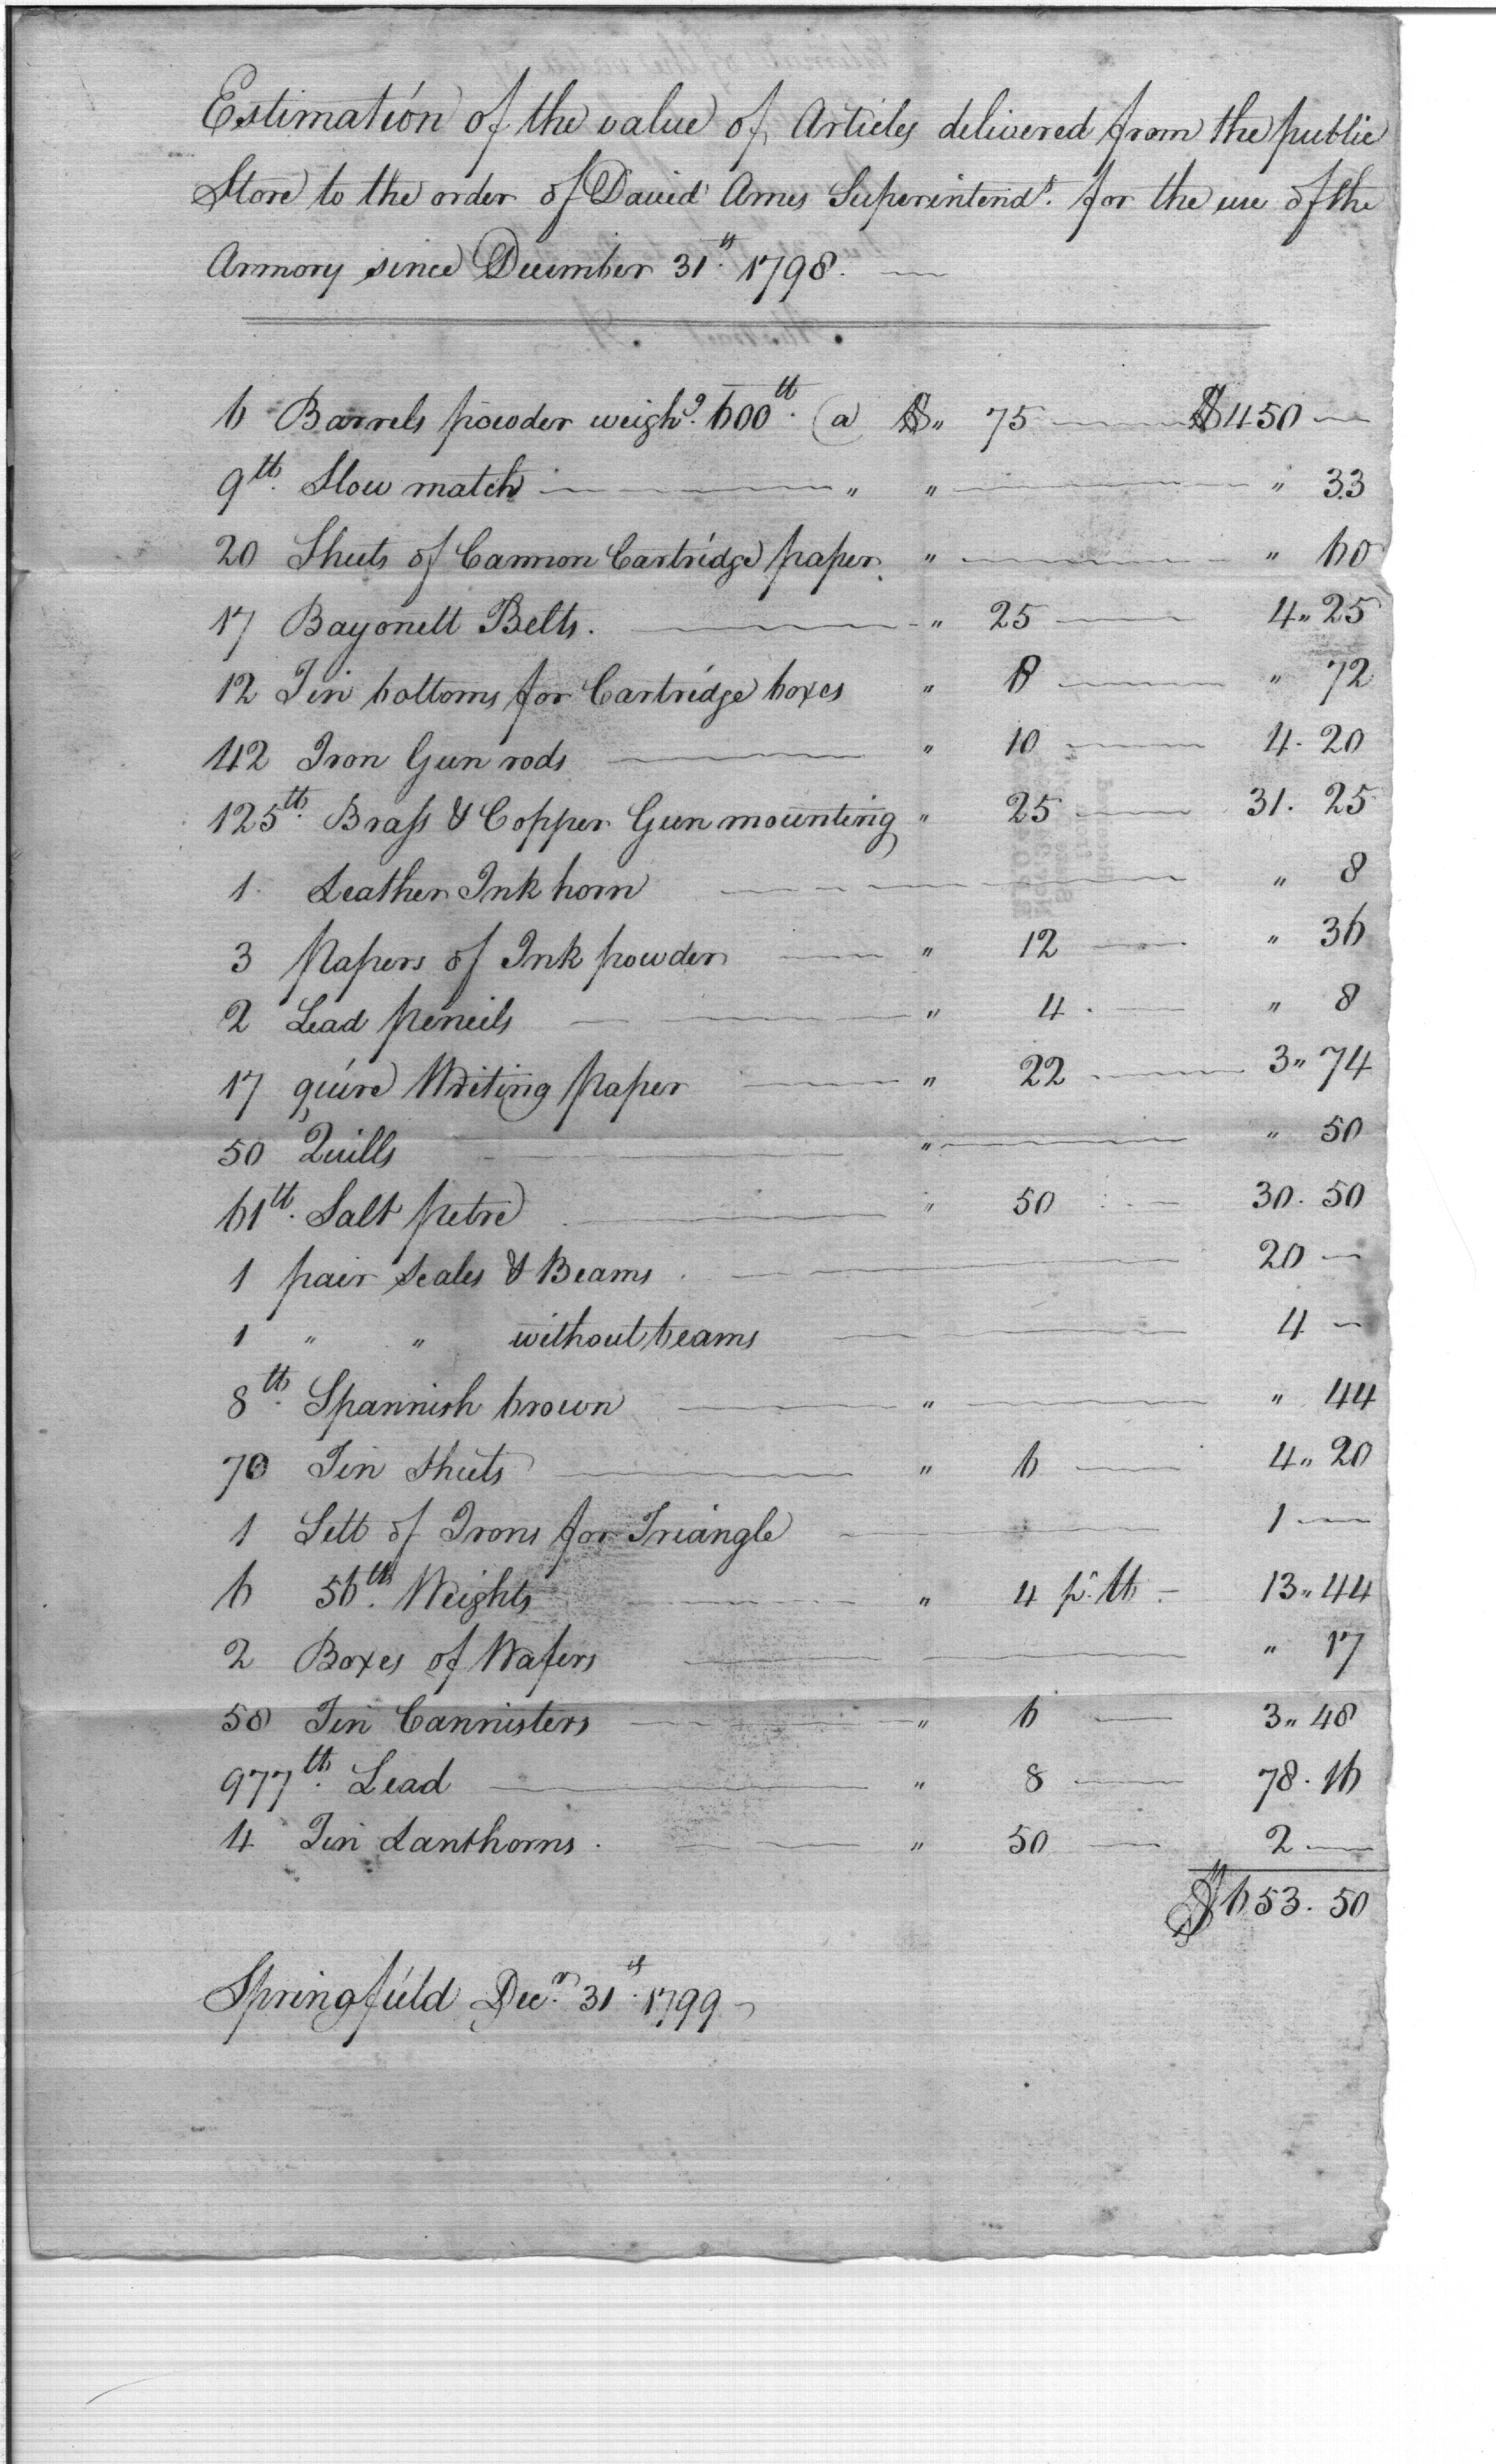 Estimation of the value of Articles delivered from the public
Store to the order of David Ames Superintendt. for the use of the
Armory since December 31st. 1798.
6 Barrels powder weighg. 600lb. @ $" 75 $450 —
9lb. Slow match " " " 33
20 Sheets of Cannon Cartridge paper " " 60
17 Bayonett Belts. " 25 4" 25
12 Tin bottoms for Cartridge boxes " 6 " 72
42 Iron Gun rods " 10 4. 20
125lb. Brass & Copper Gun mounting " 25 31. 25
1 Leather Ink horn " 8
3 Papers of Ink powder " 12 " 36
2 Lead pencils " 4 " 8
17 quire Writing Paper " 22 3" 74
50 Quills " " 50
61lb. Salt petre " 50 30. 50
1 pair Scales & Beams 20 —
1 " " without beams 4 —
8lb. Spannish brown " " 44
70 Tin Sheets " 6 4" 20
1 Sett of Irons for Triangle 1 —
6 56lb. Weights " 4 pr. lb 13" 44
2 Boxes of Wafers " 17
58 Tin Cannisters " 6 3" 48
977lb. Lead " 8 78. 16
4 Tin Lanthorns. " 50 2 —
$653. 50
Springfield Decr. 31st. 1799